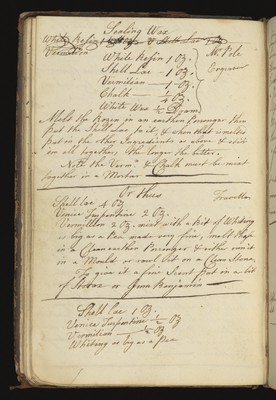 Sealing Wax
White Rosin 1 Oz. Shell Lac
Vermilion
Mr. Pole
White Rosin 1 Oz.
Shell Lac — 1 Oz.
Engraver
Vermilion — 1 Oz.
Chalk — 1/4 Oz.
White Wax 1/2 Dram
Melt the Rozin in an earthen Porringer then
put the Shell Lac to it, & when that is melted
put in the other Ingredients as above & stir
em all together, the longer the better.
Note the Verm.n & Chalk must be mixt
together in a Mortar
Or thus
Traveller
Shell Lac 4 Oz
Venice Turpentine 2 Oz.
Vermillion 2 Oz. mixt with a bit of Whiting
as big as a Pea made very fine, melt them
in a Clean earthen Porringer & either run it
in a Mould or roul it on a Clean Stone.
To give it a fine Scent put in a bit
of Storax or Gum Benjamin
Shell Lac 1 Oz.
Venice Turpentine 1/2 Oz
Vermilion — 1/2 Oz
Whiting as big as a Pea